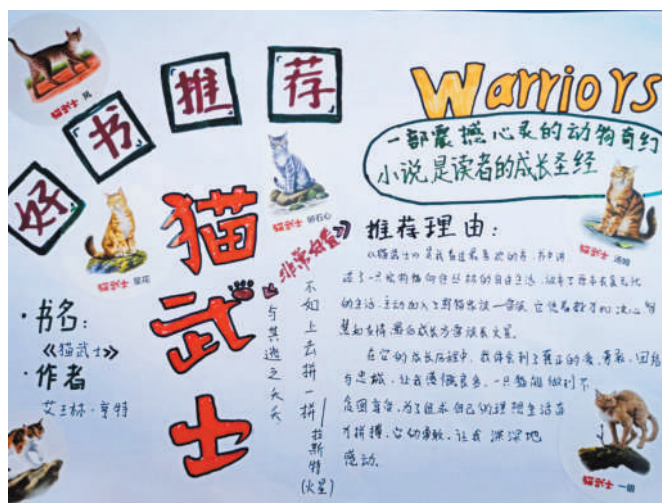 好书推荐
Warriors
一部震撼心灵的动物奇幻
小说是读者的成长圣经
猫武士 风
猫武士 星花
猫武士
猫武士
非常好看
与其逃之夭夭
不如上去拼一拼
拉斯特
(火星)
·书名:
《猫武士》
·作者
艾王林·亨特
推荐理由:
《猫武士》是我看过最喜欢的书,书中讲
述了一只宠物猫向往丛林的自由生活,放弃了原本衣食无忧
的生活,主动加入了野猫族
慧和友情,最后成长为雷族族长火星。
在它的成长历程中,我体会到了真正的爱、勇敢、团结
与忠诚,让我感慨良多,一只猫能做到不
贪图享受,为了追求自己的理想生活奋
力拼搏,它的勇敢,让我深深地
感动。
猫武士
猫武士 一眼